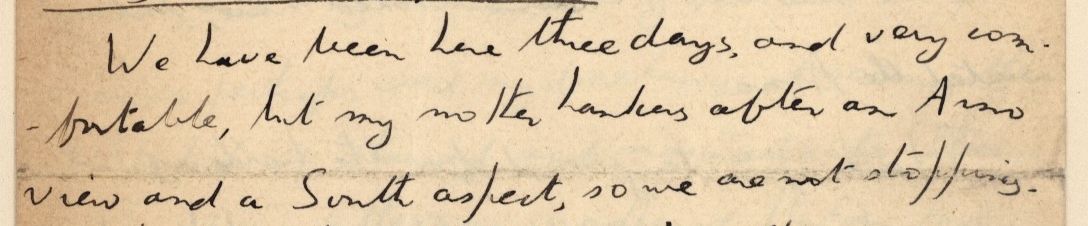 We have been here three days, and very com-
-fortable, but my mother hankers after an Arno
view and a South aspect, so we are not stopping.